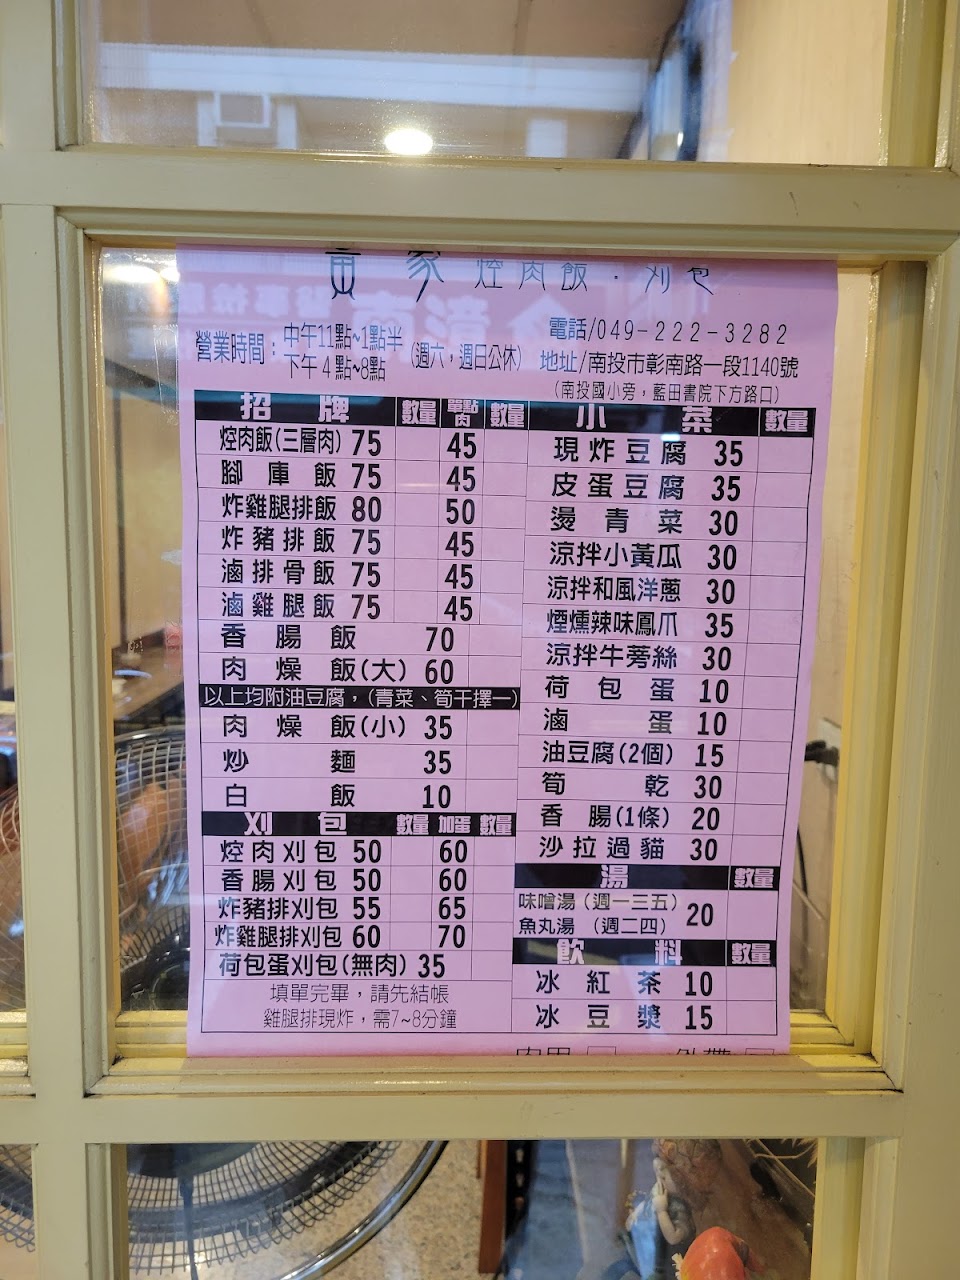 黃家 焢肉飯．刈包
營業時間：中午11點~1點半 (週六，週日公休)
下午4點~8點
電話/049-222-3282
地址/南投市彰南路一段1140號
(南投國小旁，藍田書院下方路口)
招牌 數量 單點肉 數量
焢肉飯(三層肉) 75 45
腳庫飯 75 45
炸雞腿排飯 80 50
炸豬排飯 75 45
滷排骨飯 75 45
滷雞腿飯 75 45
香腸飯 70
肉燥飯(大) 60
以上均附油豆腐，(青菜、筍干擇一)
肉燥飯(小) 35
炒麵 35
白飯 10
刈包 數量 加蛋 數量
焢肉刈包 50 60
香腸刈包 50 60
炸豬排刈包 55 65
炸雞腿排刈包 60 70
荷包蛋刈包(無肉) 35
填單完畢，請先結帳
雞腿排現炸，需7~8分鐘
小菜 數量
現炸豆腐 35
皮蛋豆腐 35
燙青菜 30
涼拌小黃瓜 30
涼拌和風洋蔥 30
煙燻辣味鳳爪 35
涼拌牛蒡絲 30
荷包蛋 10
滷蛋 10
油豆腐(2個) 15
筍乾 30
香腸(1條) 20
沙拉過貓 30
湯 數量
味噌湯 (週一三五) 20
魚丸湯 (週二四)
飲料 數量
冰紅茶 10
冰豆漿 15
內用 □ 外帶 □